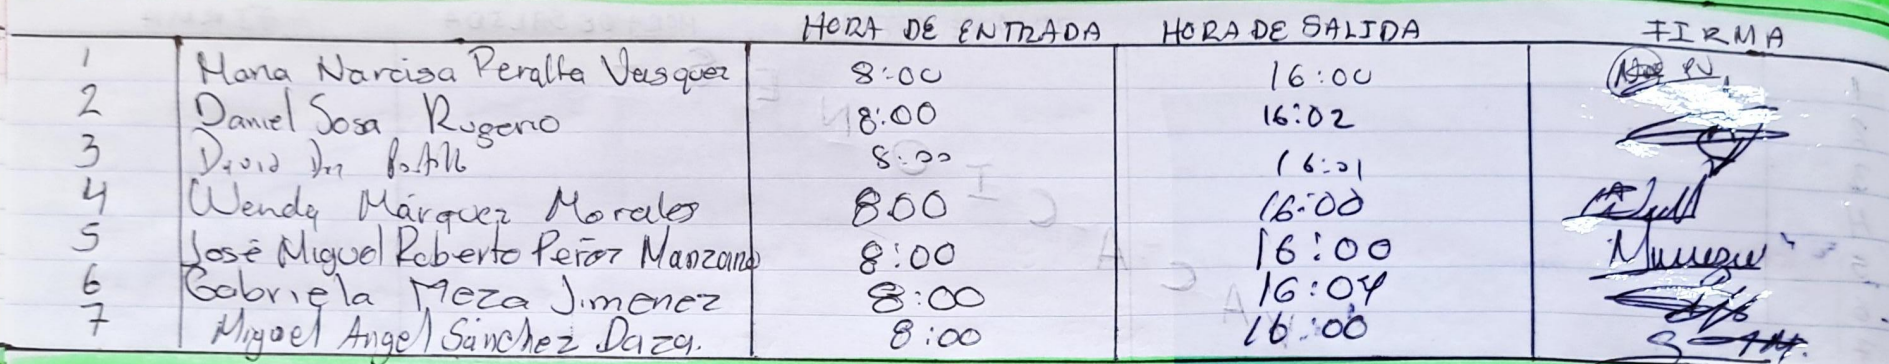 HORA DE ENTRADA HORA DE SALIDA FIRMA
1 Maria Narcisa Peralta Vasquez 8:00 16:00
2 Daniel Sosa Rugerio 8:00 16:02
3 David 8:00 16:01
4 Wendy Márquez Morales 8:00 16:00
5 José Miguel Roberto Peñoz Manzano 8:00 16:00
6 Gabriela Meza Jimenez 8:00 16:04
7 Miguel Angel Sánchez Daza. 8:00 16:00